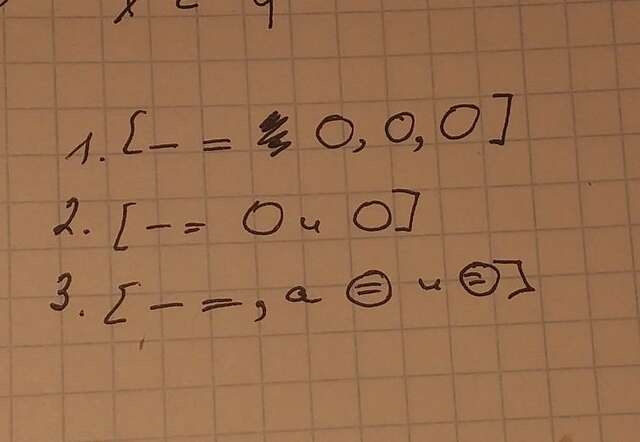 1. [– = O, O, O]
2. [– = O и O]
3. [– =, а ⊜ и ⊜]